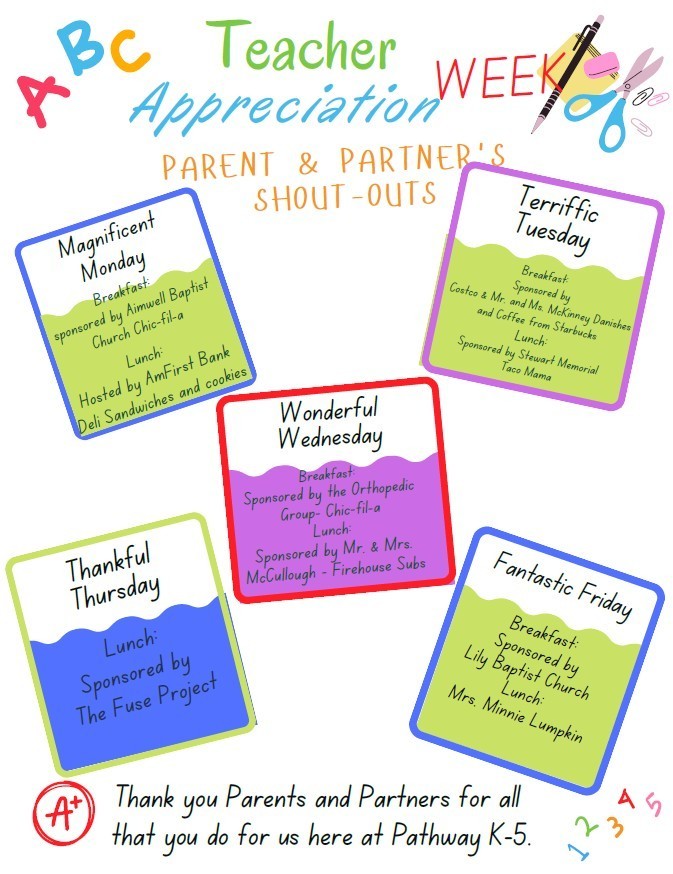 A B C
Teacher
Appreciation
WEEK
PARENT & PARTNER'S
SHOUT-OUTS
Magnificent
Monday
Breakfast:
sponsored by Aimwell Baptist
Church Chic-fil-a
Lunch:
Hosted by AmFirst Bank
Deli Sandwiches and cookies
Terriffic
Tuesday
Breakfast:
Sponsored by
Costco & Mr. and Ms. McKinney Danishes
and Coffee from Starbucks
Lunch:
Sponsored by Stewart Memorial
Taco Mama
Wonderful
Wednesday
Breakfast:
Sponsored by the Orthopedic
Group- Chic-fil-a
Lunch:
Sponsored by Mr. & Mrs.
McCullough - Firehouse Subs
Thankful
Thursday
Lunch:
Sponsored by
The Fuse Project
Fantastic Friday
Breakfast:
Sponsored by
Lily Baptist Church
Lunch:
Mrs. Minnie Lumpkin
A+
Thank you Parents and Partners for all
that you do for us here at Pathway K-5.
1 2 3 4 5